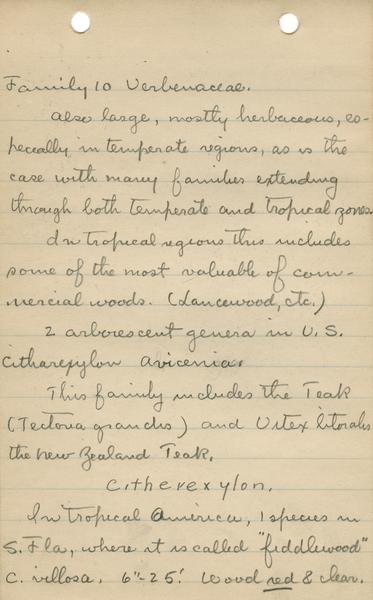 Family 10 Verbenaceae.
Also large, mostly herbaceous, es-
pecially in temperate regions, as is the
case with many families extending
through both temperate and tropical zones.
In tropical regions this includes
some of the most valuable of com-
mercial woods. (Lancewood, etc.)
2 arborescent genera in U.S.
Citharexylon Avicenia.
This family includes the Teak
(Tectona grandis) and Vitex litoralis
the New Zealand Teak.
Citherexylon.
In tropical America, 1 species in
S. Fla, where it is called "fiddlewood"
C. villosa. 6"-25'. Wood red & clear.